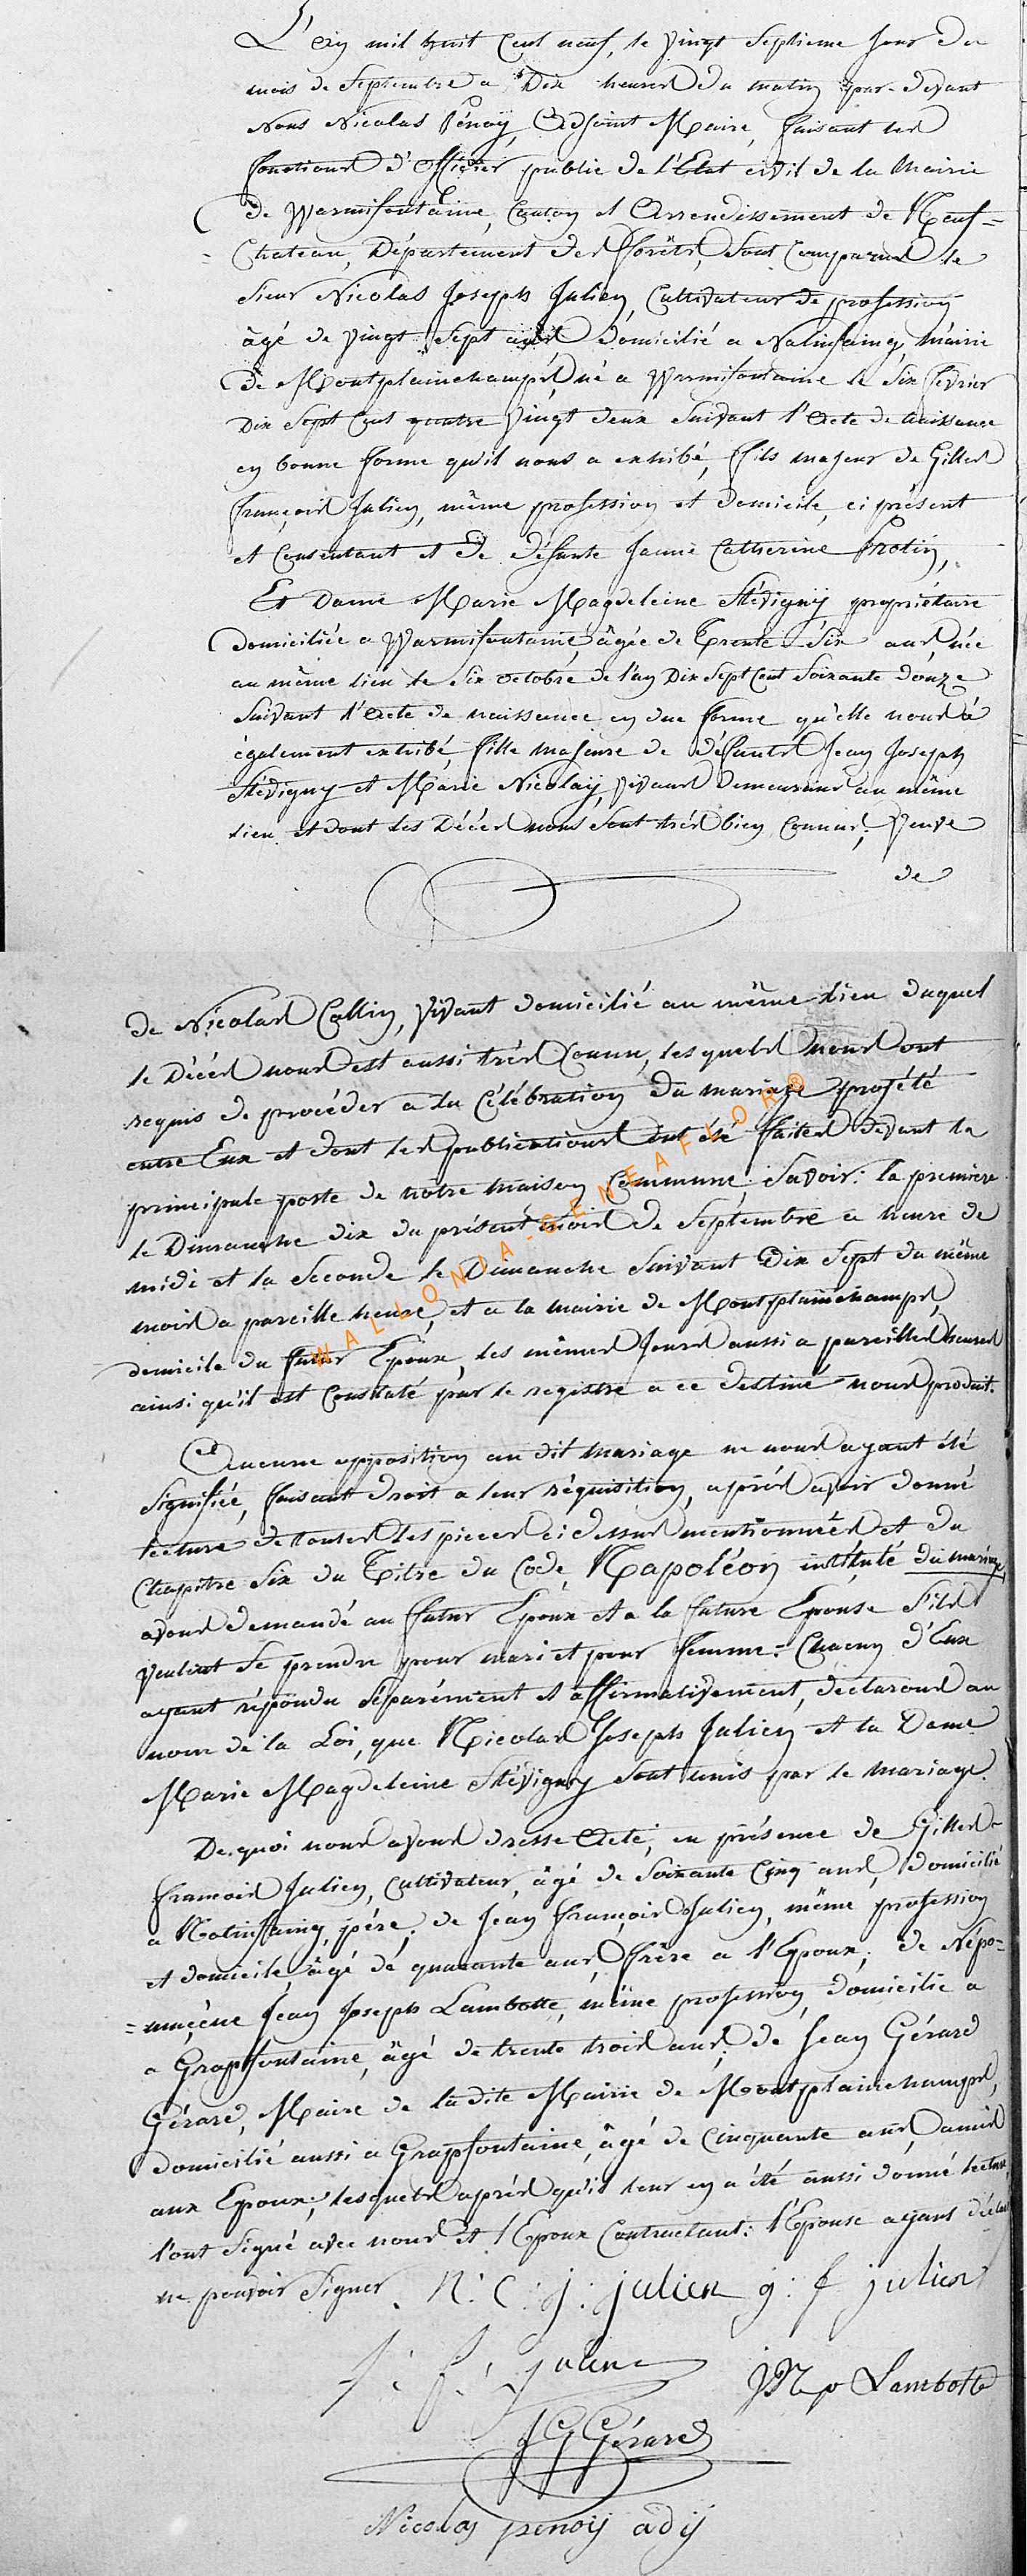 L'an mil huit Cent neuf, le vingt Septieme jour du
mois de Septembre a Dix heures du matin par-devant
Nous Nicolas Pénoÿ, Adjoint Maire, faisant les
fonctions d'officier public de l'Etat civil de la Mairie
de Warmifontaine, Canton et Arrondissement de Neuf=
Chateau, Département des forêts, Sont Comparus le
Sieur Nicolas Joseph Julien, Cultivateur de profession
âgé de vingt Sept ans domicilié a Nolinfaing, mairie
de Montplainchamps, né a Warmifontaine le Six fevrier
Dix Sept Cent quatre vingt deux Suivant l'Acte de naissance
en bonne forme qu'il nous a exhibé, fils majeur de Gilles
françois Julien, même profession et domicile, ci présent
et Consentant et de défunte Jeanne Catherine Protin,
Et Dame Marie Magdeleine Stévignÿ propriétaire
domiciliée a Warmifontaine, âgée de Trente-Six ans, née
au même lieu le Six octobre de l'an Dix Sept Cent Soixante douze
Suivant l'Acte de naissance en due forme qu'elle nous a
également exhibé, fille majeure de défunts Jean Joseph
Stévigny et Marie Nicolaÿ, vivans demeurans au même
lieu et dont les Décès nous Sont très bien Connus; Veuve
de
de Nicolas Collin, vivant domicilié au même lieu duquel
le Décès nous est aussi très Connu, lesquels nous ont
requis de procéder a la Célébration du mariage projété
entre Eux et dont les publications ont été faites devant la
principale porte de nôtre maison Commune; Savoir: la premiere
le Dimanche dix du présent mois de Septembre a heure de
midi et la Seconde le Dimanche Suivant Dix Sept du même
mois a pareille heure, et a la mairie de Montplainchamps,
domicile du futur Epoux, les mêmes Jours aussi a pareilles heures
ainsi qu'il est Constaté par le registre a ce destiné nous produit.
Aucune opposition au dit mariage ne nous ayant été
Signifiée, faisant droit a leur réquisition, après avoir donné
lecture de toutes les pieces ci dessus mentionnées et du
Chapitre Six du Titre du Code Napoléon intitulé du mariage,
avons demandé au futur Epoux et a la future Epouse S'ils
veulent Se prendre pour mari et pour femme: Chacun d'Eux
ayant répondu Séparément et affirmativement, déclarons au
nom de la Loi, que Nicolas Joseph Julien et la Dame
Marie Magdeleine Stévigny Sont unis par le mariage.
De quoi nous avons dressé Acte, en présence de Gilles
françois Julien, Cultivateur, âgé de Soixante Cinq ans, domicilié
a Nolinfaing, père; de Jean françois Julien, même profession
et domicile, âgé de quarante ans, frère a l'Epoux; de Népo=
=mucène Jean Joseph Lambotte, même profession, domicilié a
a Grapfontaine, âgé de trente trois ans; de Jean Gérard
Gérard, Maire de la dite Mairie de Montplainchamps,
domicilié aussi a Grapfontaine, âgé de Cinquante ans, amis
aux Epoux; lesquels après qu'il leur en a été aussi donné lecture,
l'ont Signé avec nous et l'Epoux Contractant: l'Epouse ayant déclaré
ne pouvoir Signer. N: C: j: julien g: f julien
J: f: julien JNp Lambotte
JG Gérard
Nicolas penoij adij
WALLONIA-GENEAFLOR®